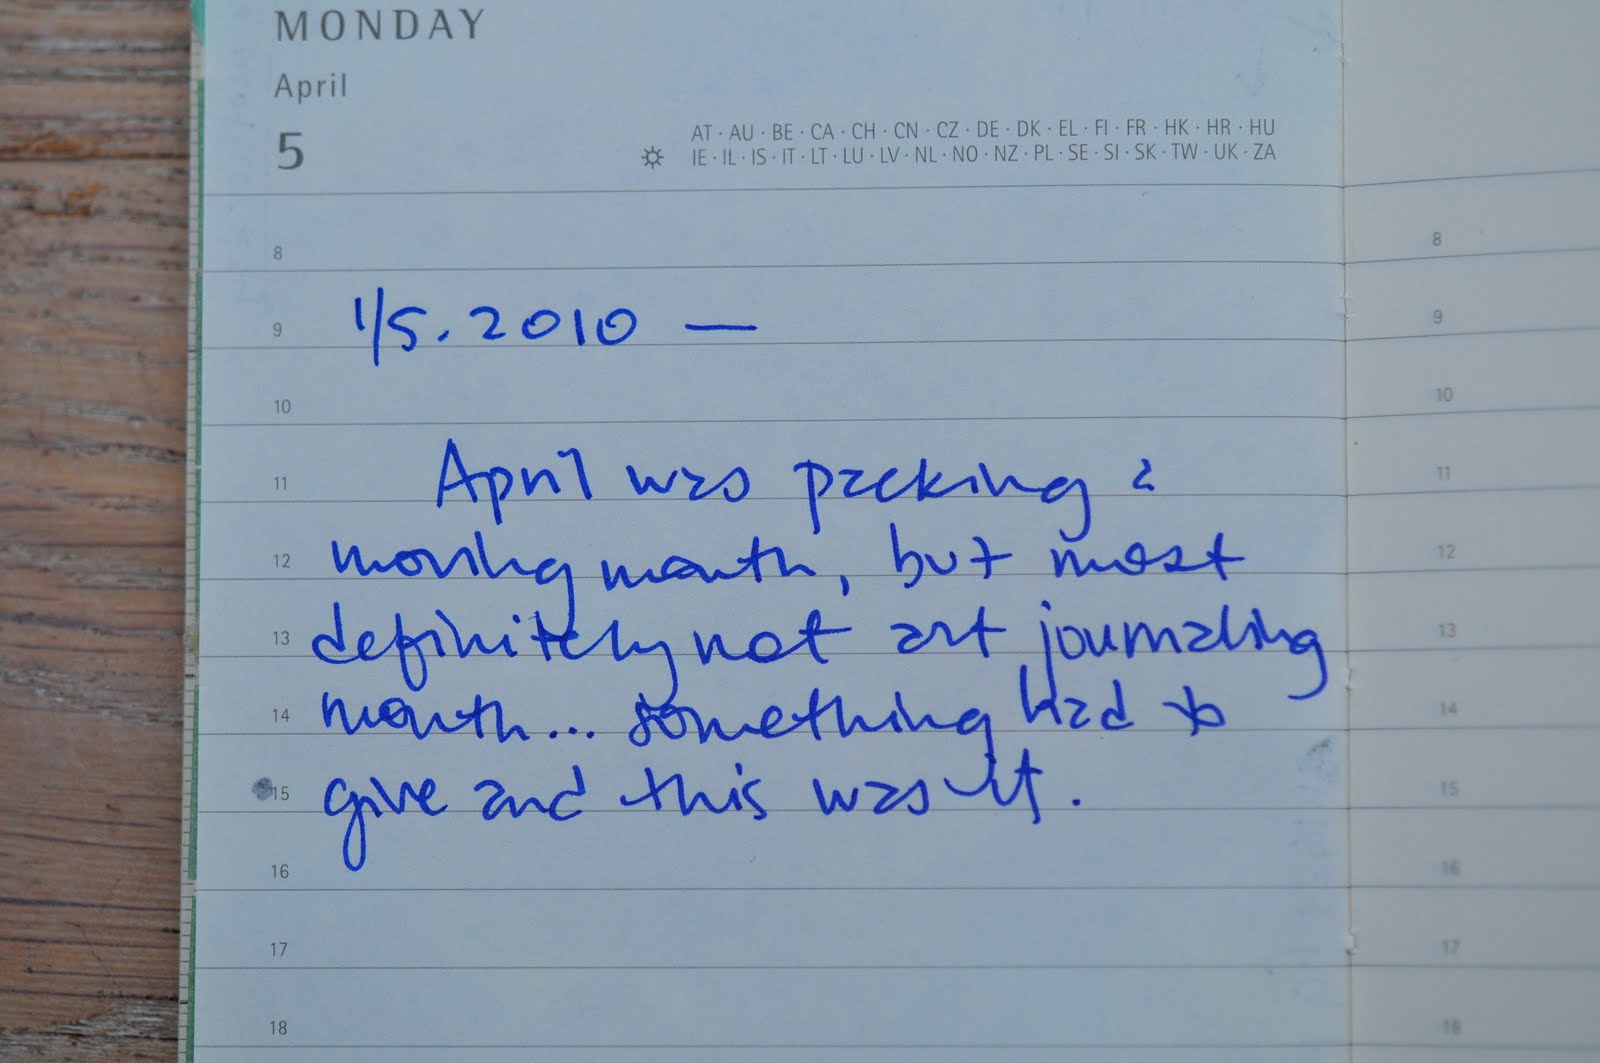 MONDAY
April
5
AT · AU · BE · CA · CH · CN · CZ · DE · DK · EL · FI · FR · HK · HR · HU
IE · IL · IS · IT · LT · LU · LV · NL · NO · NZ · PL · SE · SI · SK · TW · UK · ZA
8
9 1/5. 2010 —
10
11 April was packing &
12 moving month, but most
13 definitely not art journaling
14 month... something had to
15 give and this was it.
16
17
18
8
9
10
11
12
13
14
15
16
17
18